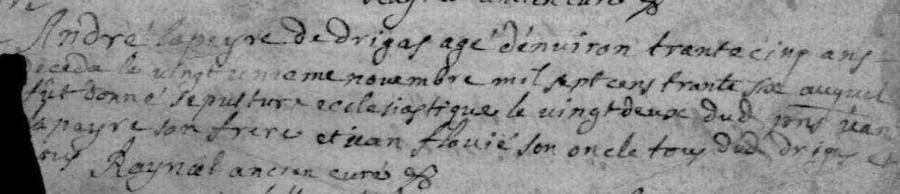 ancien curé
André lapeyre de drigas agé d'environ trante cinq ans
deceda le vingt unieme novembre mil sept cens trante six auquel
fut donné sepulture ecclesiastique le vingt deux dud pnts Jean
lapeyre son frere et Jean flavié son oncle tous dud drigas et
Raynal ancien curé